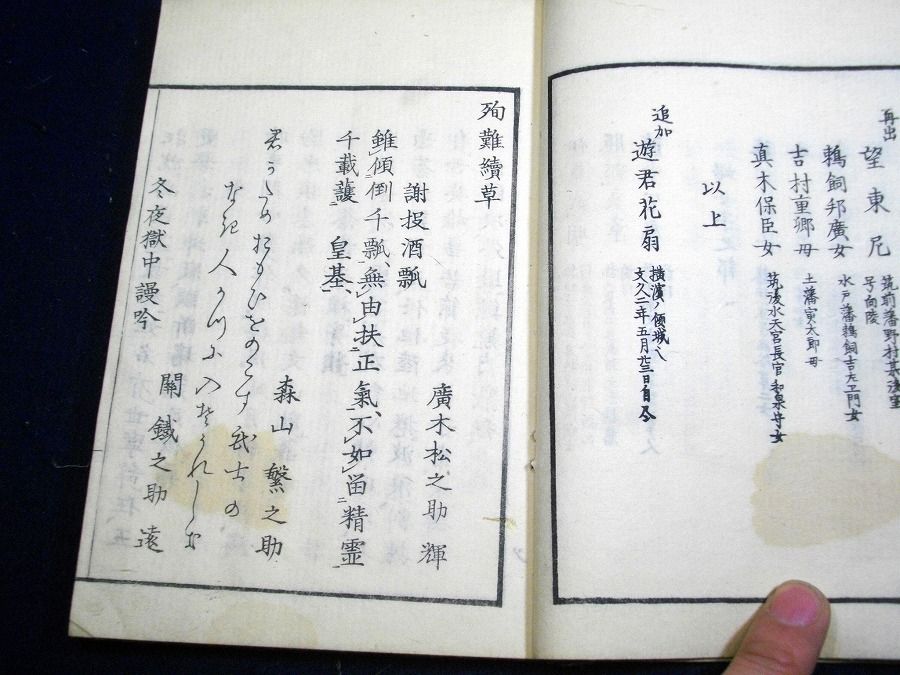 再出
望東尼 筑前藩野村某後室 号向陵
鵜飼邦廣女 水戸藩鵜飼吉左エ門女
吉村重郷母 土藩寅太郎母
真木保臣女 筑後水天宮長官和泉守女
以上
追加
遊君花扇 横濱ノ傾城 文久二年五月廿三日自尽
殉難續草
廣木松之助 輝
謝投酒瓢
雖傾倒千瓢、無由扶正氣、不如留精霊
千載護 皇基、
森山繁之助
君うしのおもひをのこす武士の
なき人かづに入そうれしき
関鐵之助 遠
冬夜獄中謾吟